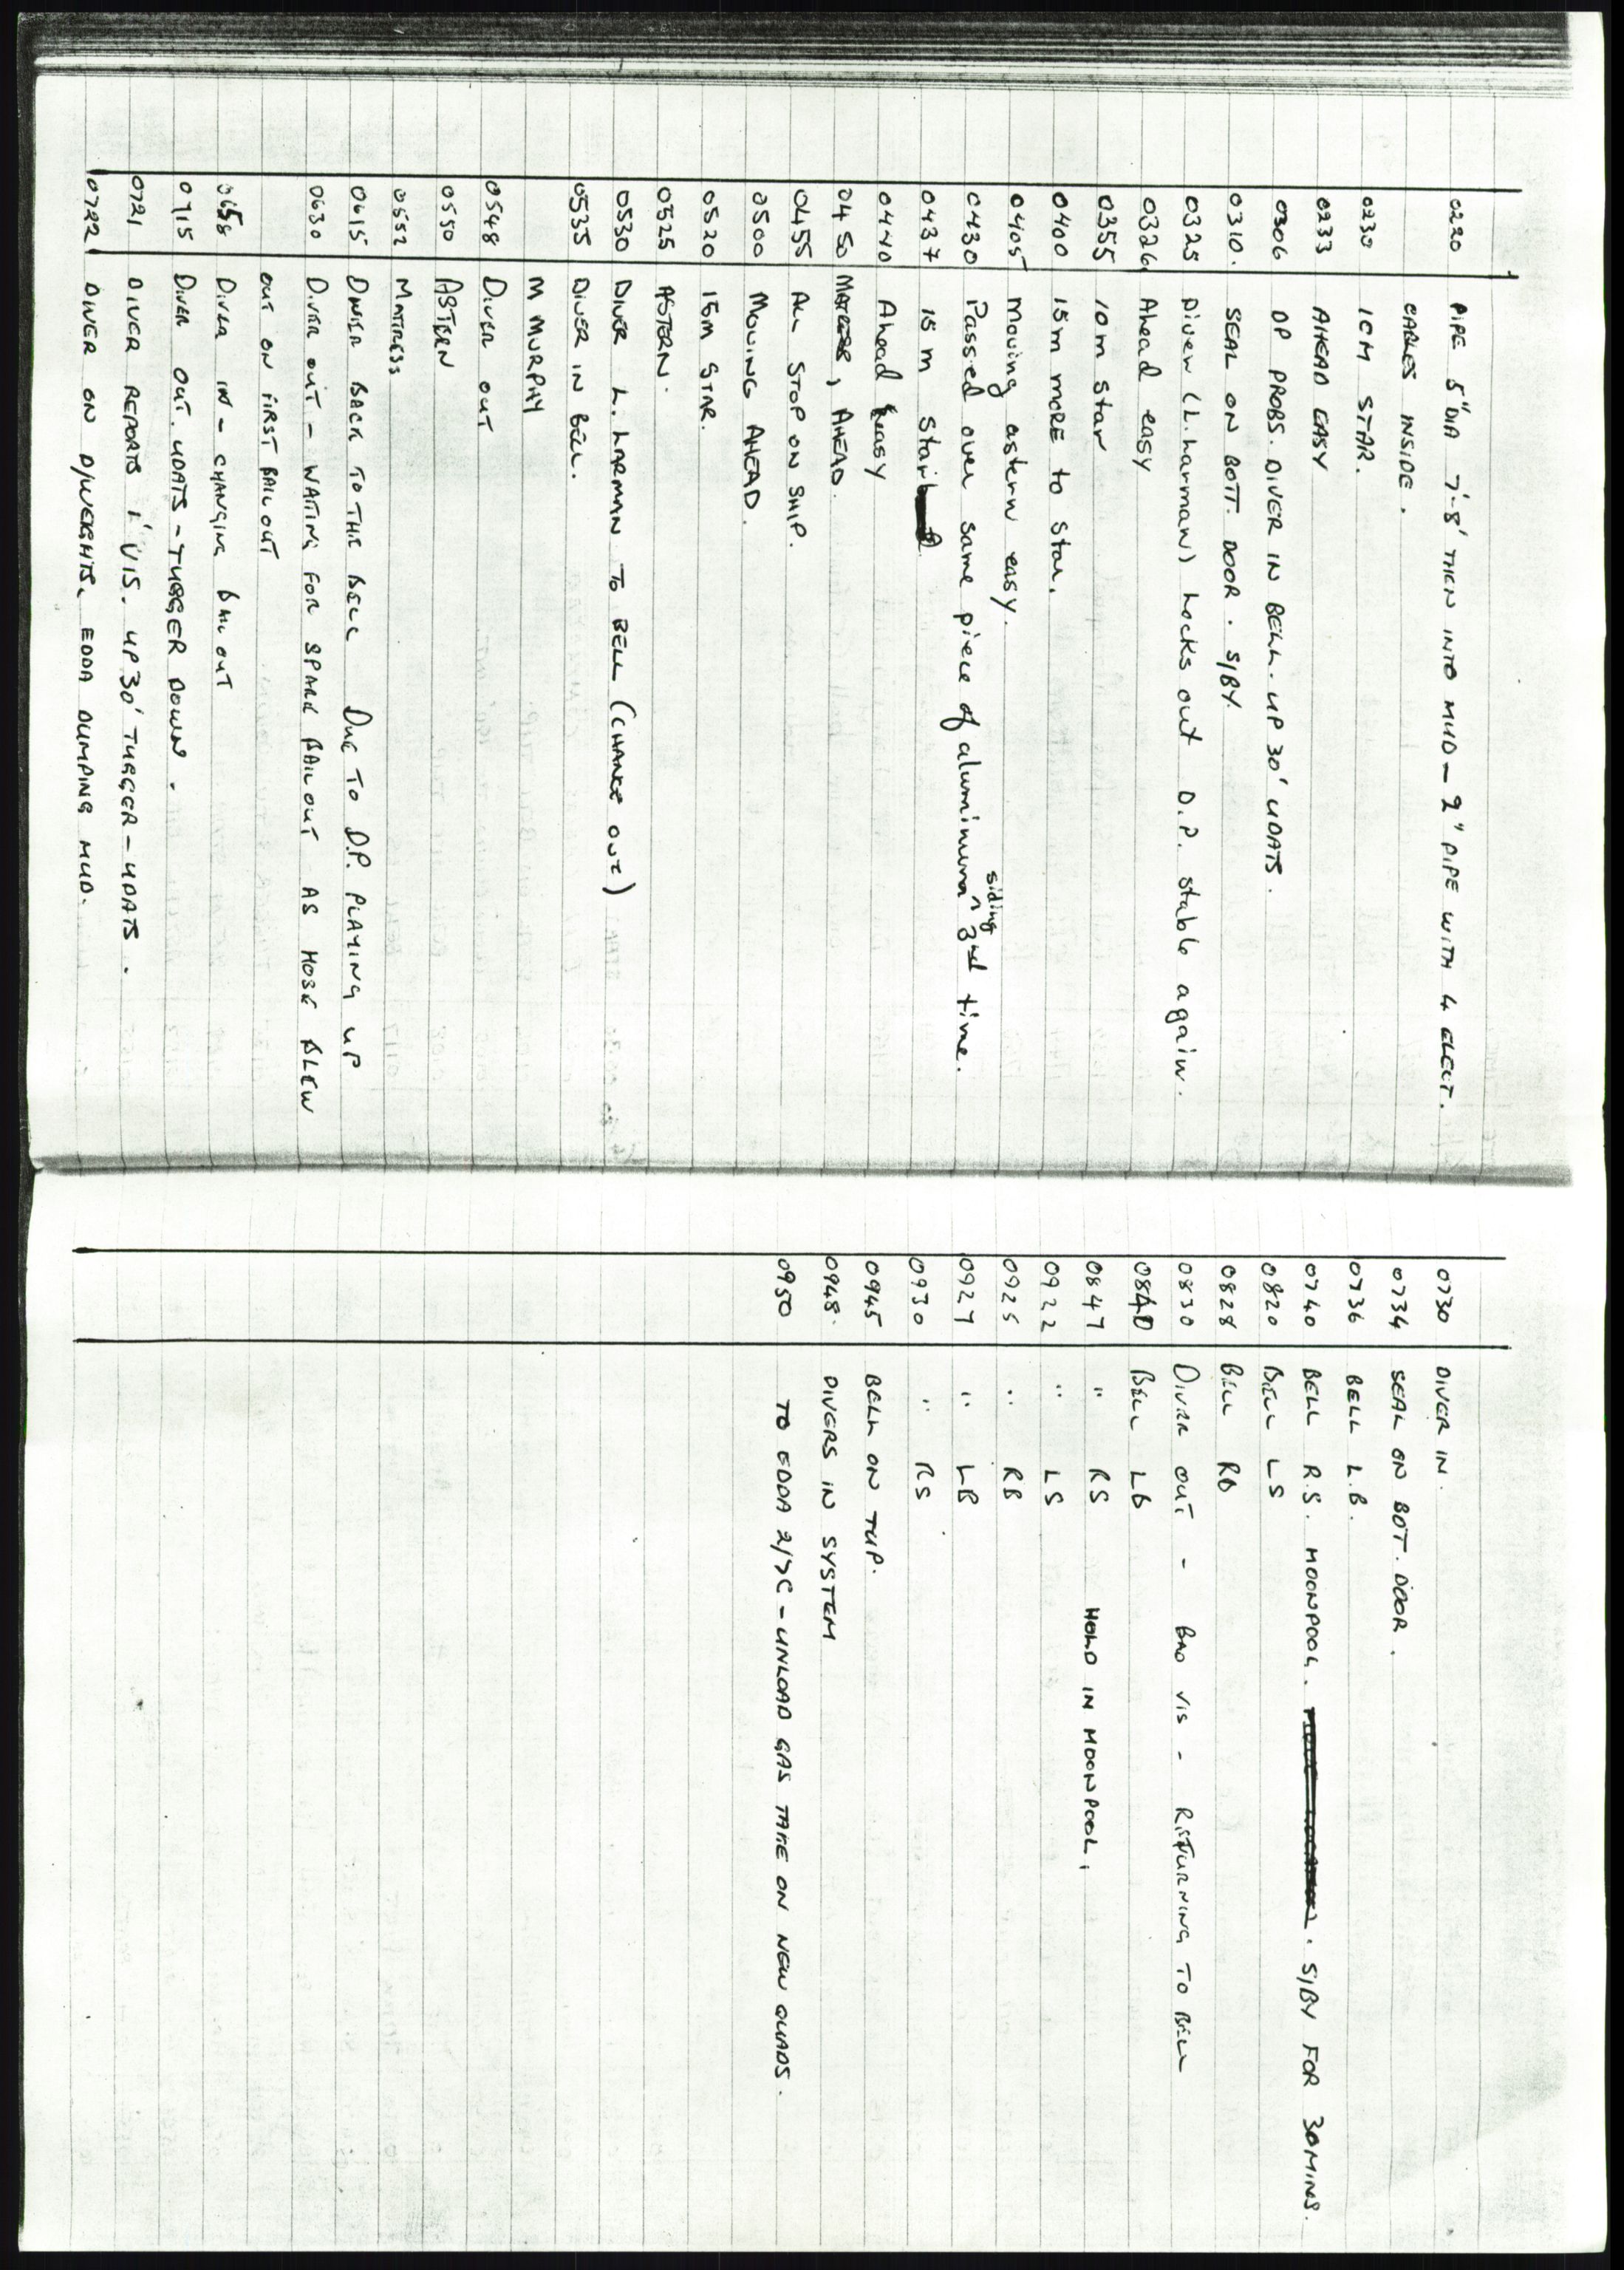 0220 PIPE 5" DIA 7'-8' THEN INTO MUD - 2" PIPE WITH 4 ELECT.
CABLES INSIDE.
0230 10M STAR.
0233 AHEAD EASY
0306 DP PROBS. DIVER IN BELL. UP 30' UDATS.
0310. SEAL ON BOTT. DOOR. S/BY.
0325 Diver (L. harman) locks out D.P. stable again.
0326 Ahead easy
0355 10 m star
0400 15 m MORE to star.
0405 Moving astern easy.
0430 Passed over same piece of aluminium siding 3rd time.
0437 15 m star
0440 Ahead easy
0450 AHEAD.
0455 ALL STOP ON SHIP.
0500 MOVING AHEAD.
0520 15M STAR.
0525 ASTERN.
0530 DIVER L. HARMAN TO BELL (CHANGE OUT)
0535 DIVER IN BELL.
M MURPHY
0548 DIVER OUT
0550 ASTERN
0552 MATTRESS
0615 DIVER BACK TO THE BELL DUE TO D.P. PLAYING UP
0630 DIVER OUT - WAITING FOR SPARE BAILOUT AS HOSE BLEW
OUT ON FIRST BAILOUT
0658 DIVER IN - CHANGING BAILOUT
0715 DIVER OUT. UDATS - TUGGER DOWN.
0721 DIVER REPORTS 1' VIS. UP 30' TUGGER - UDATS.
0722 DIVER ON D/WEIGHTS. EDDA DUMPING MUD.
0730 DIVER IN.
0734 SEAL ON BOT. DOOR.
0736 BELL L.B.
0740 BELL R.S. MOONPOOL. S/BY FOR 30 MINS.
0820 BELL LS
0828 BELL RB
0830 DIVER OUT - BAD VIS - RETURNING TO BELL
0840 BELL LB
0847 " RS HOLD IN MOONPOOL.
0922 " LS
0925 " RB
0927 " LB
0930 " RS
0945 BELL ON TUP.
0948. DIVERS IN SYSTEM
0950 TO EDDA 2/7C - UNLOAD GAS TAKE ON NEW QUADS.